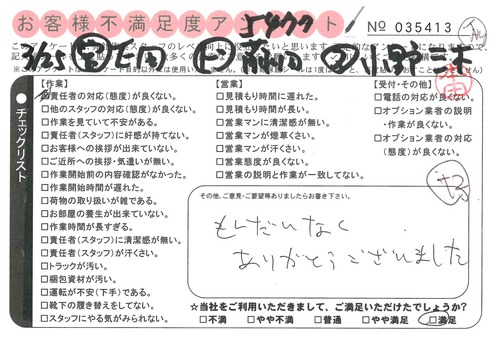 お客様不満足度アンケート
No 035413
3/25
【作業】
□責任者の対応(態度)が良くない。
□他のスタッフの対応(態度)が良くない。
□作業を見ていて不安がある。
□責任者(スタッフ)に好感が持てない。
□お客様への挨拶が出来ていない。
□ご近所への挨拶・気遣いが無い。
□作業開始前の内容確認がなかった。
□作業開始時間が遅れた。
□荷物の取り扱いが雑である。
□お部屋の養生が出来ていない。
□作業時間が長すぎる。
□責任者(スタッフ)に清潔感が無い。
□責任者(スタッフ)が汗くさい。
□トラックが汚い。
□梱包資材が汚い。
□運転が不安(下手)である。
□靴下の履き替えをしてない。
□スタッフにやる気がみられない。
【営業】
□見積もり時間に遅れた。
□見積もり時間が長い。
□営業マンに清潔感が無い。
□営業マンが煙草くさい。
□営業マンが汗くさい。
□営業態度が良くない。
□営業の説明と作業が一致してない。
【受付・その他】
□電話の対応が良くない。
□オプション業者の説明
・作業が良くない。
□オプション業者の対応
(態度)が良くない。
チェックリスト
その他、ご意見・ご要望等ありましたらお書き下さい。
もんだいなく
ありがとうございました
☆当社をご利用いただきまして、ご満足いただけたでしょうか?
□不満 □やや不満 □普通 □やや満足 □満足